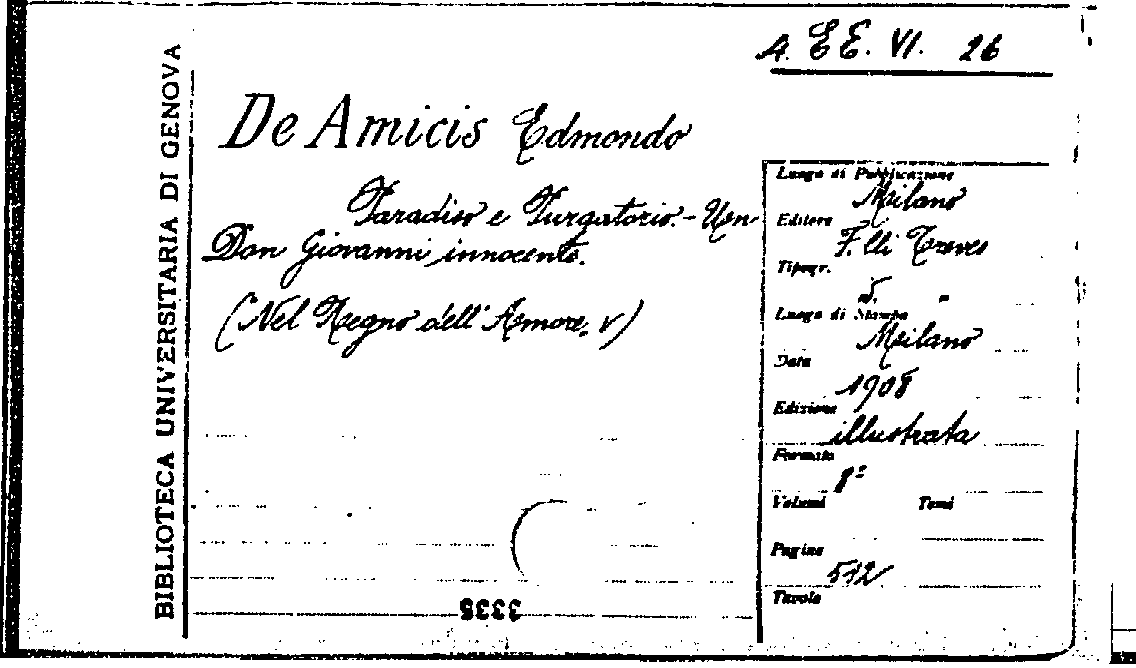 A. EE. VI. 26
BIBLIOTECA UNIVERSITARIA DI GENOVA
De Amicis Edmondo
Paradiso e Purgatorio. - Un
Don Giovanni innocente.
(Nel Regno dell'Amore, V)
Luogo di Pubblicazione
Milano
Editore
F.lli Treves
Tipogr.
Luogo di Stampa
Milano
Data
1908
Edizione
illustrata
Formato
8º
Volumi Tomi
Pagine
512
Tavole
3335